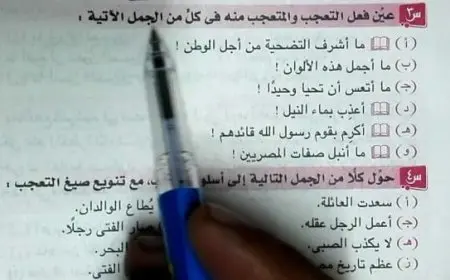 س٣ عين فعل التعجب والمتعجب منه في كل من الجمل الآتية :
(أ) ما أشرف التضحية من أجل الوطن !
(ب) ما أجمل هذه الألوان !
(جـ) ما أتعس أن تحيا وحيدًا !
(د) أعذب بماء النيل !
(هـ) أكرم بقوم رسول الله قائدهم !
(و) ما أنبل صفات المصريين !
س٤ حول كلًا من الجمل التالية إلى مع تنويع صيغ التعجب :
(أ) سعدت العائلة. يُطاع الوالدان.
(جـ) أعمل الرجل عقله. الفتى رجلًا.
(هـ) لا يكذب الصبى. البحر.
(ز) عظم تاريخ الفتى.